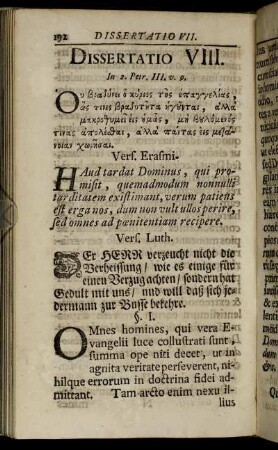 192 DISSERTATIO VII.
DISSERTATIO VIII.
In 2. Petr. III. v. 9.
Οὐ βραδύνει ὁ κύριος τῆς ἐπαγγελίας,
ὥς τινες βραδύτητα ἡγοῦνται, ἀλλὰ
μακροθυμεῖ εἰς ἡμᾶς, μὴ βουλόμενός
τινας ἀπολέσθαι, ἀλλὰ πάντας εἰς μετά-
νοιαν χωρῆσαι.
Vers. Erasmi.
HAud tardat Dominus, qui pro-
misit, quemadmodum nonnulli
tarditatem existimant, verum patiens
est erga nos, dum non vult ullos perire,
sed omnes ad pœnitentiam recipere.
Vers. Luth.
DEr HERR verzeucht nicht die
Verheissung/ wie es einige für
einen Verzug achten/ sondern hat
Gedult mit uns/ und will daß sich je-
dermann zur Busse bekehre.
§. I.
OMnes homines, qui vera E-
vangelii luce collustrati sunt,
summa ope niti decet, ut in
agnita veritate perseverent, ni-
hilque errorum in doctrina fidei ad-
mittant. Tam arcto enim nexu il-
lius